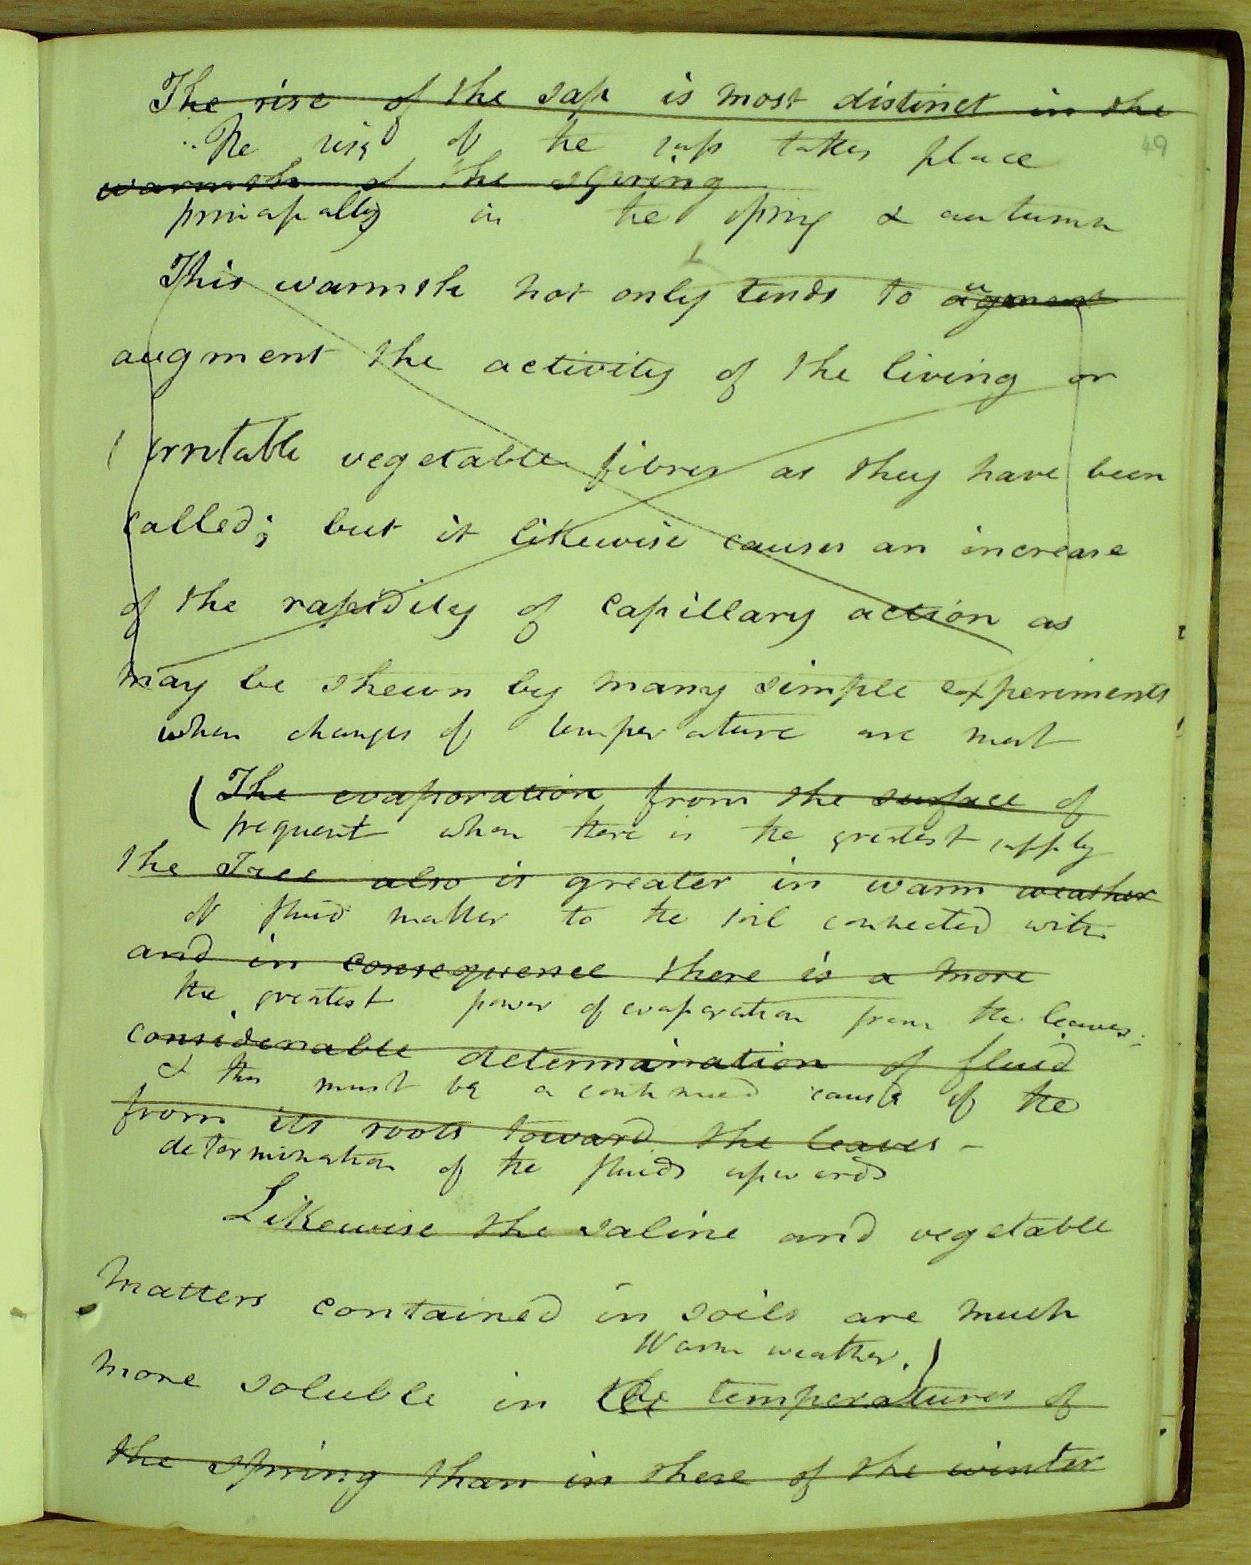 The rise of the sap is most distinct in the
49
The rise of the sap takes place
warmth of the spring
principally in the spring & autumn
This warmth not only tends to augment
augment the activity of the living or
irritable vegetable fibres as they have been
called; but it likewise causes an increase
of the rapidity of capillary action as
may be shewn by many simple experiments
when changes of temperature are most
(The evaporation from the surface of
frequent when there is the greatest supply
the Tree also is greater in warm weather
of fluid matter to the soil connected with
and in consequence there is a more
the greatest power of evaporation from the leaves;
considerable determination of fluid
& this must be a continued cause of the
from its roots toward the leaves -
determination of the fluids upwards
Likewise the saline and vegetable
matters contained in soils are much
Warm weather.)
more soluble in the temperatures of
the spring than in these of the winter